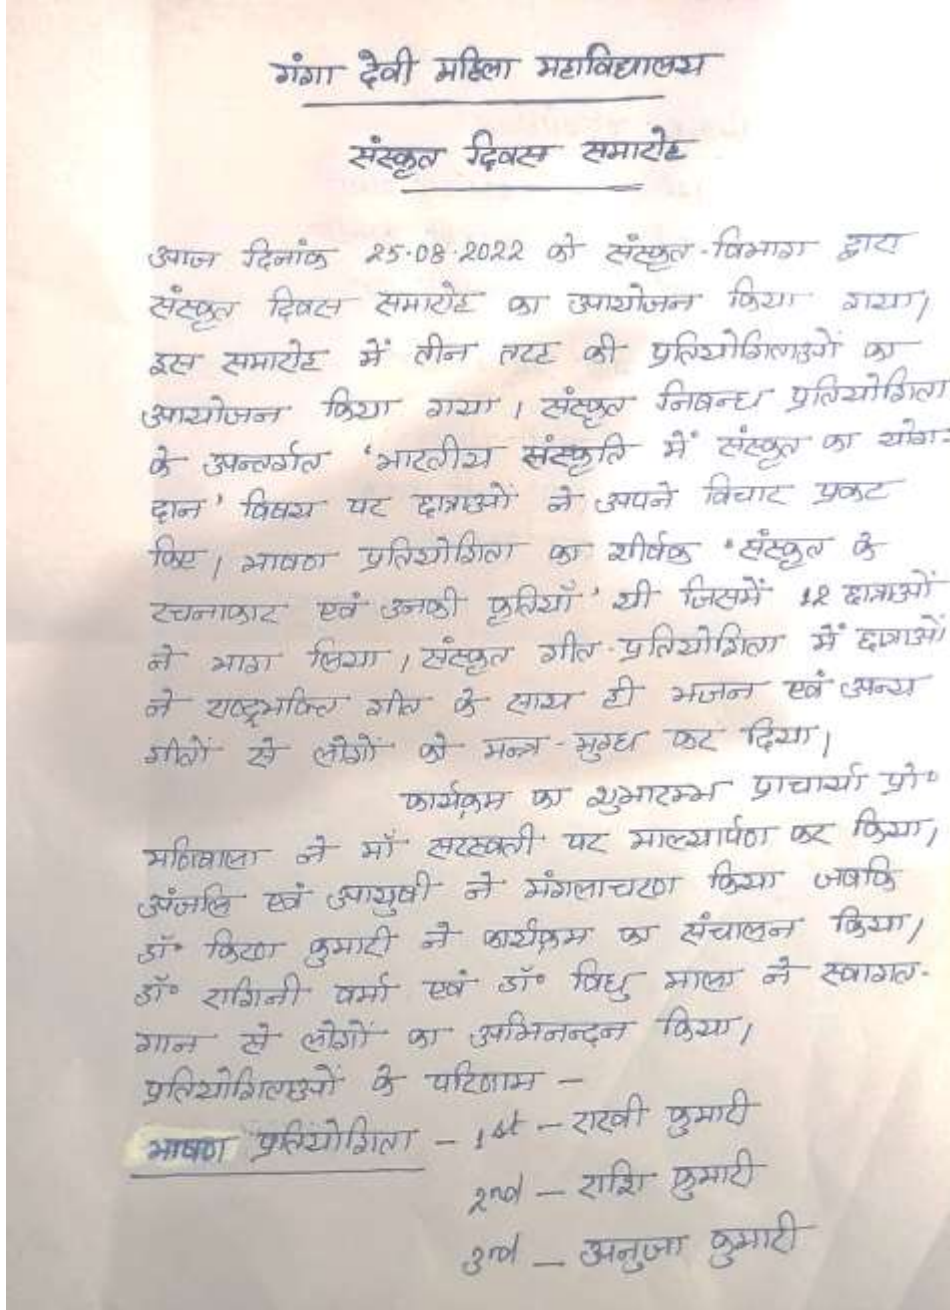 गंगा देवी महिला महाविद्यालय
संस्कृत दिवस समारोह
आज दिनांक 25.08.2022 को संस्कृत-विभाग द्वारा
संस्कृत दिवस समारोह का आयोजन किया गया।
इस समारोह में तीन तरह की प्रतियोगिताओं का
आयोजन किया गया। संस्कृत निबन्ध प्रतियोगिता
के अन्तर्गत 'भारतीय संस्कृति में संस्कृत का योग-
दान' विषय पर छात्राओं ने अपने विचार प्रकट
किए। भाषण प्रतियोगिता का शीर्षक 'संस्कृत के
रचनाकार एवं उनकी कृतियाँ' थी जिसमें 12 छात्राओं
ने भाग लिया। संस्कृत गीत-प्रतियोगिता में छात्राओं
ने राष्ट्रभक्ति गीत के साथ ही भजन एवं अन्य
गीतों से लोगों को मन्त्र-मुग्ध कर दिया।
कार्यक्रम का शुभारम्भ प्राचार्या प्रो०
मणिबाला ने माँ सरस्वती पर माल्यार्पण कर किया।
अंजलि एवं आयुषी ने मंगलाचरण किया जबकि
डॉ० किरण कुमारी ने कार्यक्रम का संचालन किया।
डॉ० रागिनी वर्मा एवं डॉ० विधु माला ने स्वागत-
गान से लोगों का अभिनन्दन किया।
प्रतियोगिताओं के परिणाम -
भाषण प्रतियोगिता - 1st - राखी कुमारी
2nd - राशि कुमारी
3rd - अनुजा कुमारी